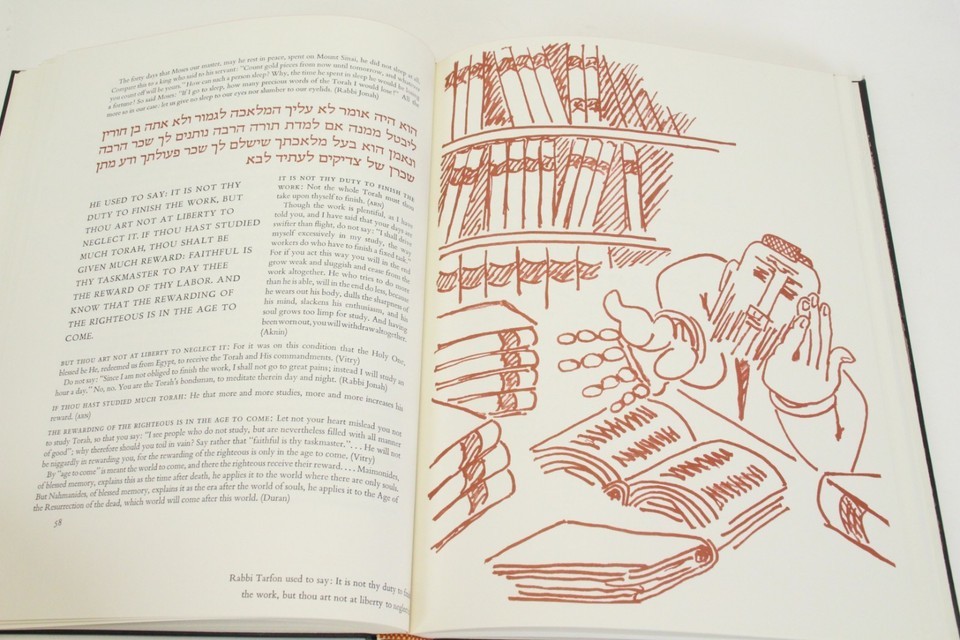 The forty days that Moses our master, may he rest in peace, spent on Mount Sinai, he did not sleep at all.
Compare this to a king who said to his servant: "Count gold pieces from now until tomorrow, and whatever
you count off will be yours." How can such a person sleep? Why, the time he spent in sleep he would be losing
a fortune! So said Moses: "If I go to sleep, how many precious words of the Torah I would lose!" All the
more so in our case: let us give no sleep to our eyes not slumber to our eyelids. (Rabbi Jonah)
הוא היה אומר לא עליך המלאכה לגמור ולא אתה בן חורין
ליבטל ממנה אם למדת תורה הרבה נותנים לך שכר הרבה
ונאמן הוא בעל מלאכתך שישלם לך שכר פעולתך ודע מתן
שכרן של צדיקים לעתיד לבא
HE USED TO SAY: IT IS NOT THY
DUTY TO FINISH THE WORK, BUT
THOU ART NOT AT LIBERTY TO
NEGLECT IT. IF THOU HAST STUDIED
MUCH TORAH, THOU SHALT BE
GIVEN MUCH REWARD: FAITHFUL IS
THY TASKMASTER TO PAY THEE
THE REWARD OF THY LABOR. AND
KNOW THAT THE REWARDING OF
THE RIGHTEOUS IS IN THE AGE TO
COME.
IT IS NOT THY DUTY TO FINISH THE
WORK: Not the whole Torah must thou
take upon thyself to finish. (ARN)
Though the work is plentiful, as I have
told you, and I have said that your days are
swifter than flight, do not say: "I shall drive
myself excessively in my study, the way
workers do who have to finish a fixed task."
For if you act this way you will in the end
grow weak and sluggish and cease from the
work altogether. He who tries to do more
than he is able, will in the end do less, because
he wears out his body, dulls the sharpness of
his mind, slackens his enthusiasm, and his
soul grows too limp for study. And having
been worn out, you will withdraw altogether.
(Aknin)
BUT THOU ART NOT AT LIBERTY TO NEGLECT IT: For it was on this condition that the Holy One,
blessed be He, redeemed us from Egypt, to receive the Torah and His commandments. (Vitry)
Do not say: "Since I am not obliged to finish the work, I shall not go to great pains; instead I will study an
hour a day." No, no. You are the Torah's bondman, to meditate therein day and night. (Rabbi Jonah)
IF THOU HAST STUDIED MUCH TORAH: He that more and more studies, more and more increases his
reward. (ARN)
THE REWARDING OF THE RIGHTEOUS IS IN THE AGE TO COME: Let not your heart mislead you not
to study Torah, so that you say: "I see people who do not study, but are nevertheless filled with all manner
of good"; why therefore should you toil in vain? Say rather that "faithful is thy taskmaster.". . . He will not
be niggardly in rewarding you, for the rewarding of the righteous is only in the age to come. (Vitry)
By "age to come" is meant the world to come, and there the righteous receive their reward. . . . Maimonides,
of blessed memory, explains this as the time after death, he applies it to the world where there are only souls.
But Nahmanides, of blessed memory, explains it as the era after the world of souls, he applies it to the Age of
the Resurrection of the dead, which world will come after this world. (Duran)
58
Rabbi Tarfon used to say: It is not thy duty to
the work, but thou art not at liberty to neglect